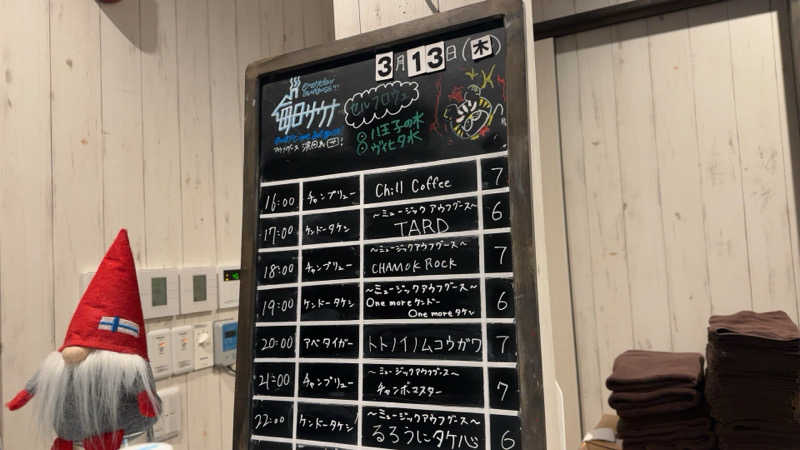 3月13日(木)
毎日サウナ
セルフロウリュ
①八王子の水
②ヴィヒタ水
16:00 チャンプリュー Chill Coffee 7
17:00 ケンドータケシ 〜ミュージックアウフグース〜 TARD 6
18:00 チャンプリュー 〜ミュージックアウフグース〜 CHAMOK ROCK 7
19:00 ケンドータケシ 〜ミュージックアウフグース〜 One more ケンドー One more タケシ 6
20:00 アベタイガー トトノイノムコウガワ 7
21:00 チャンプリュー 〜ミュージックアウフグース〜 チャンポマスター 7
22:00 ケンドータケシ 〜ミュージックアウフグース〜 るろうにタケ心 6